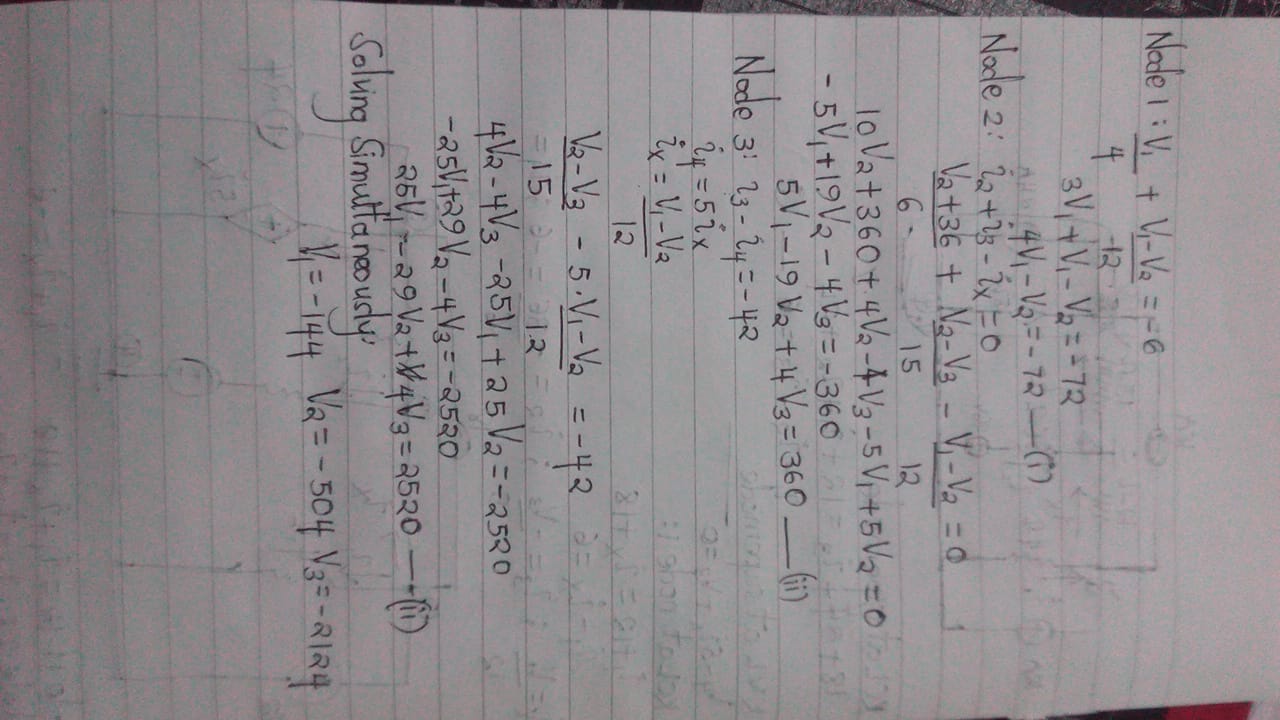 Node 1: V₁/4 + (V₁-V₂)/12 = -6
3V₁+V₁-V₂=-72
4V₁-V₂=-72 —(i)
Node 2: i₂+i₃-iₓ=0
(V₂+36)/6 + (V₂-V₃)/15 - (V₁-V₂)/12 = 0
10V₂+360+4V₂-4V₃-5V₁+5V₂=0
-5V₁+19V₂-4V₃=-360
5V₁-19V₂+4V₃=360 —(ii)
Node 3: i₃-i₄=-42
i₄=5iₓ
iₓ=(V₁-V₂)/12
(V₂-V₃)/15 - 5·(V₁-V₂)/12 = -42
4V₂-4V₃-25V₁+25V₂=-2520
-25V₁+29V₂-4V₃=-2520
25V₁-29V₂+4V₃=2520 —(ii)
Solving Simultaneously:
V₁=-144 V₂=-504 V₃=-2124